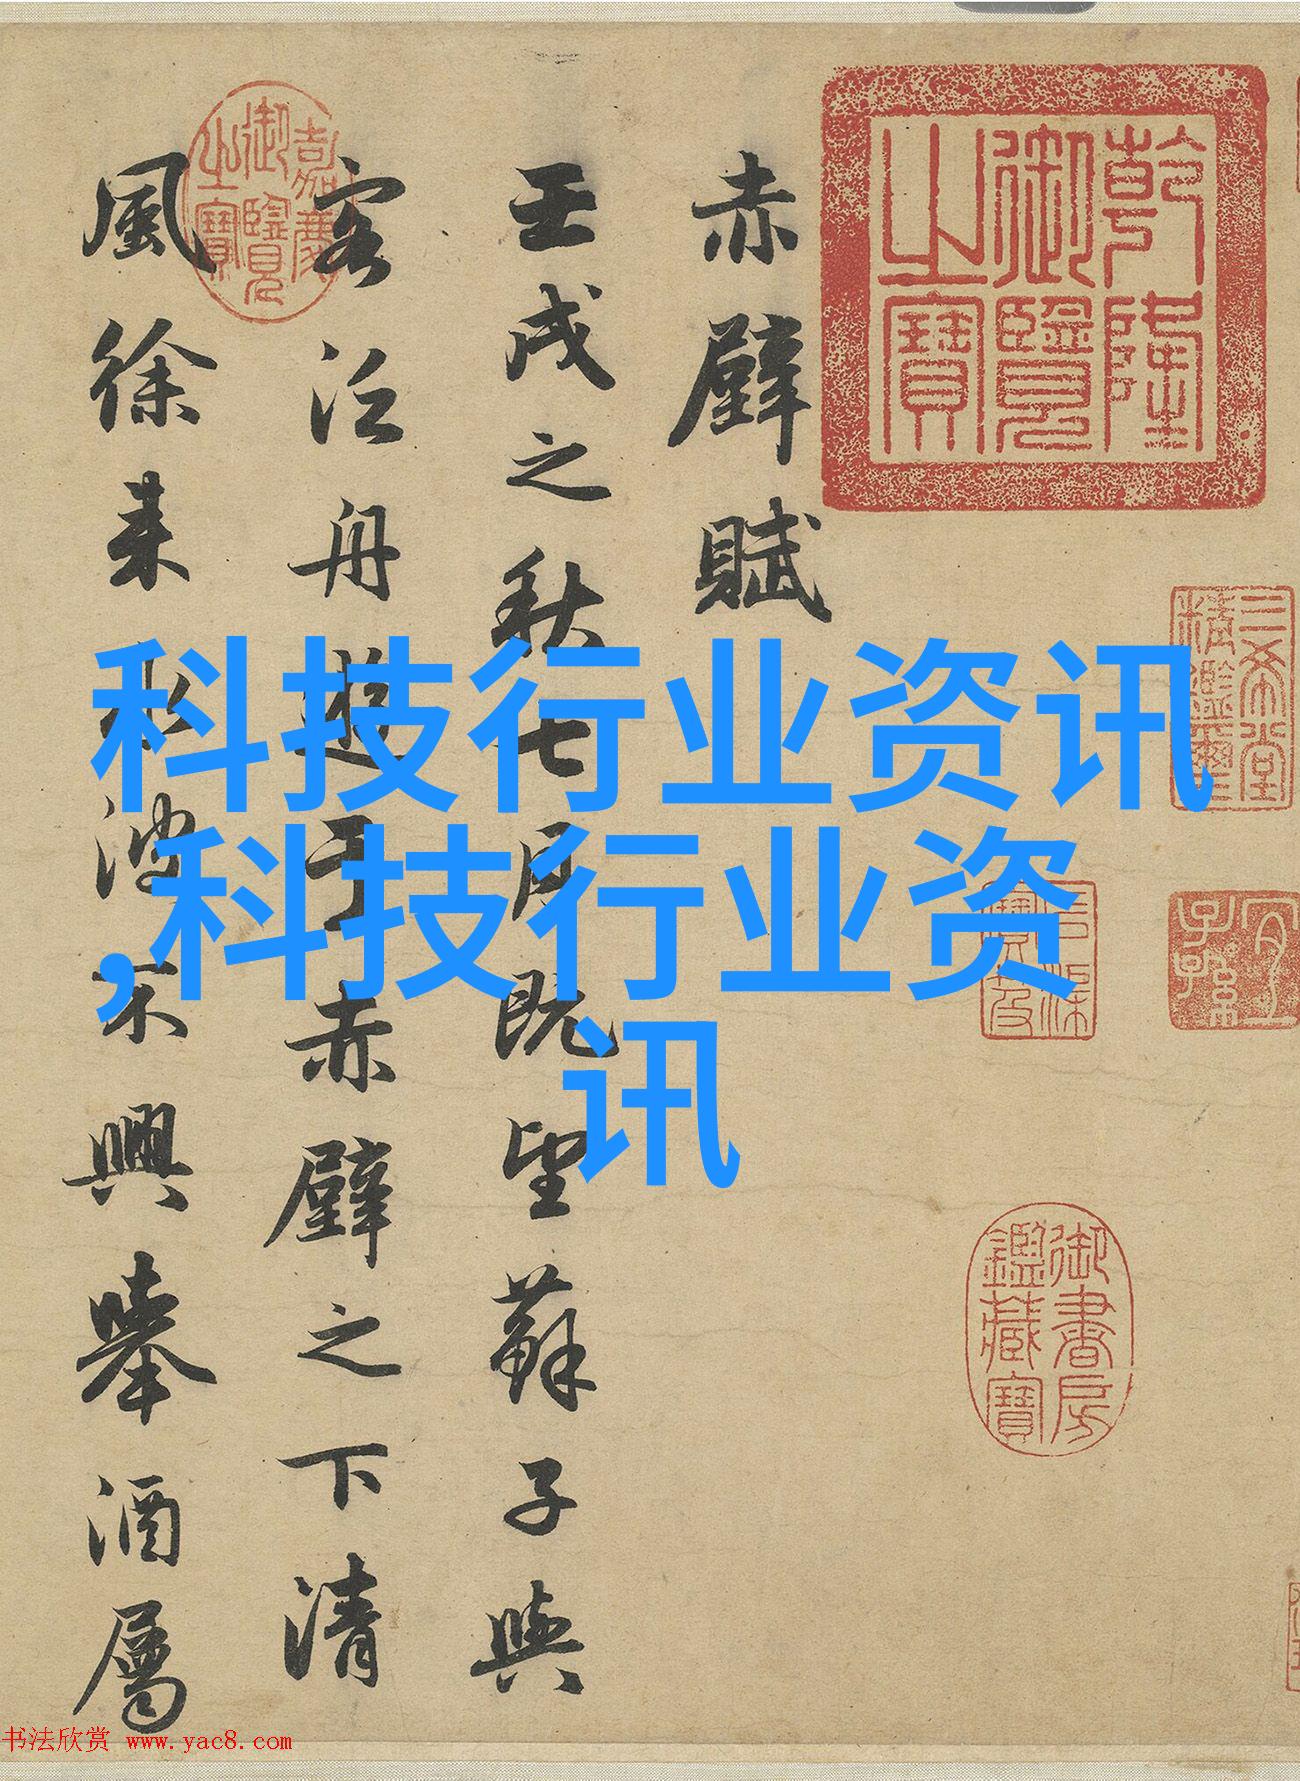 乾隆御覽之寶
三希堂精鑑璽
宜子孫
石渠寶笈
御書房鑑藏寶
赤壁賦
壬戌之秋七月既望蘇子與
客泛舟遊于赤壁之下清
風徐來水波不興舉酒屬
嘉慶御覽之寶
科技行业资讯
,科技行业资
讯
书法欣赏 www.yac8.com